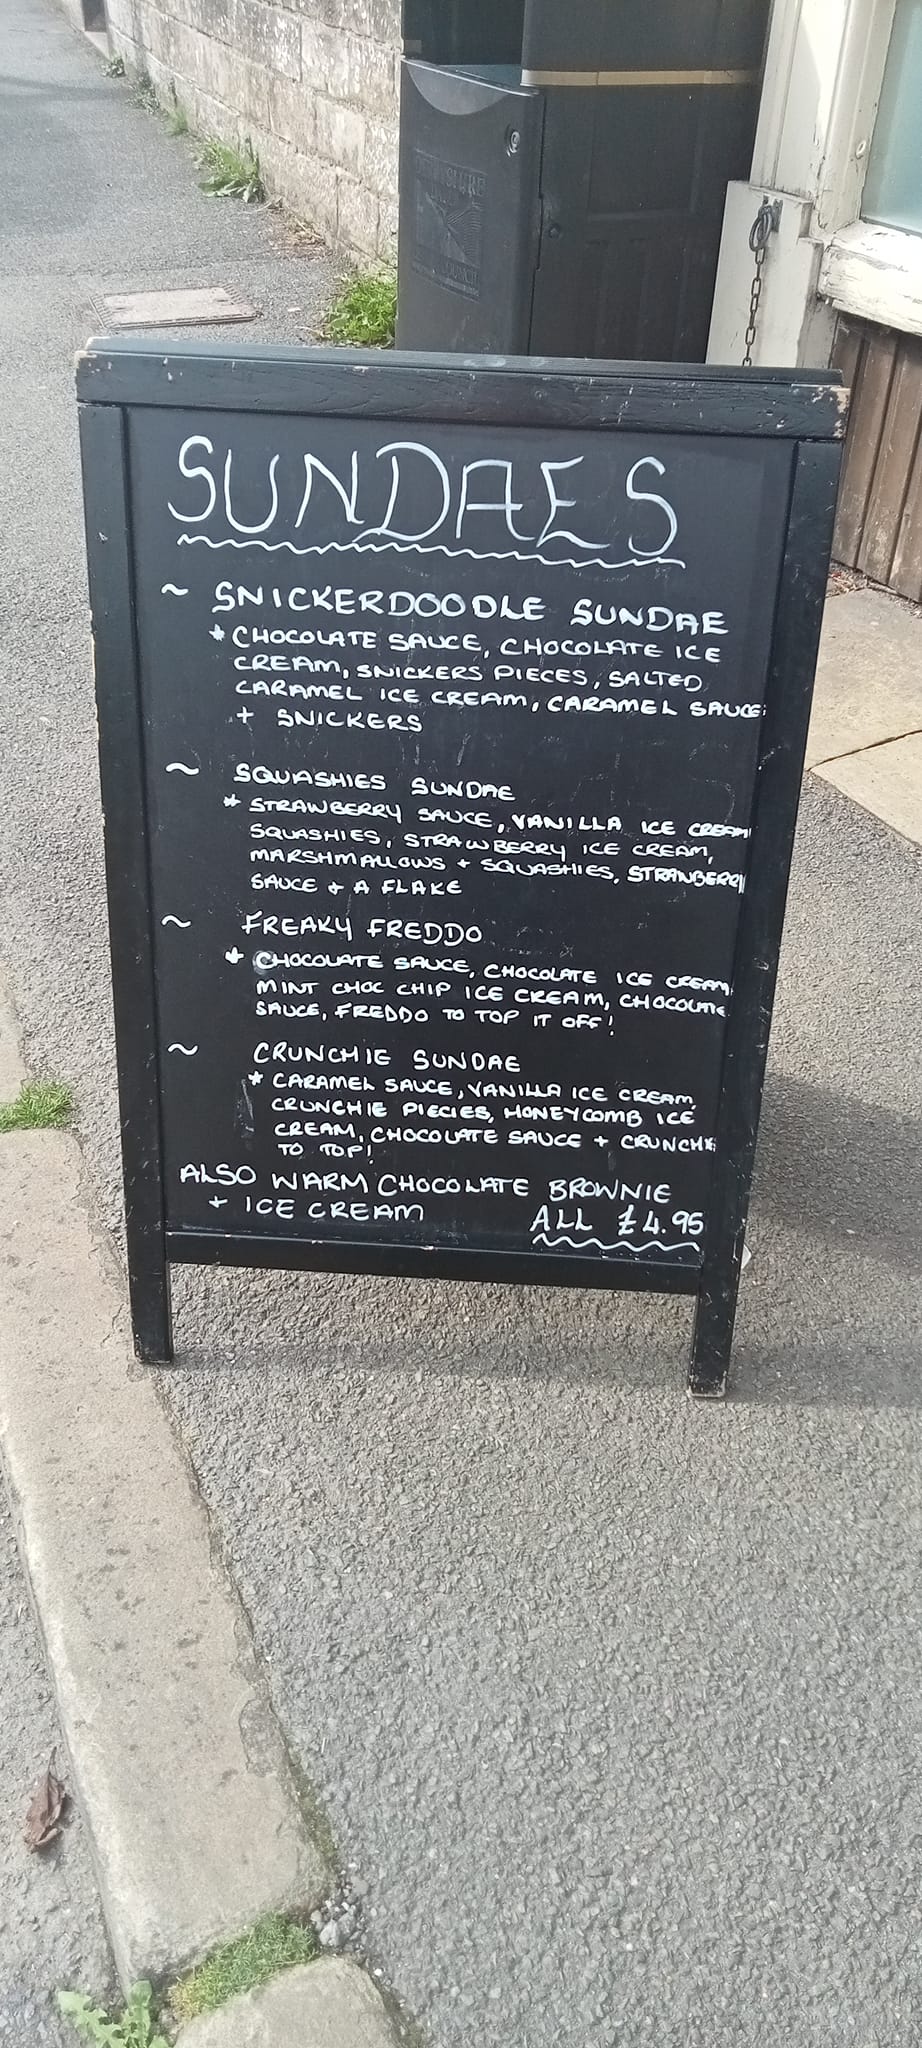 SUNDAES
~ SNICKERDOODLE SUNDAE
* CHOCOLATE SAUCE, CHOCOLATE ICE
CREAM, SNICKERS PIECES, SALTED
CARAMEL ICE CREAM, CARAMEL SAUCE
+ SNICKERS
~ SQUASHIES SUNDAE
* STRAWBERRY SAUCE, VANILLA ICE CREAM
SQUASHIES, STRAWBERRY ICE CREAM,
MARSHMALLOWS + SQUASHIES, STRAWBERRY
SAUCE + A FLAKE
~ FREAKY FREDDO
* CHOCOLATE SAUCE, CHOCOLATE ICE CREAM
MINT CHOC CHIP ICE CREAM, CHOCOLATE
SAUCE, FREDDO TO TOP IT OFF!
~ CRUNCHIE SUNDAE
* CARAMEL SAUCE, VANILLA ICE CREAM,
CRUNCHIE PIECIES, HONEYCOMB ICE
CREAM, CHOCOLATE SAUCE + CRUNCHIE
TO TOP!
ALSO WARM CHOCOLATE BROWNIE
+ ICE CREAM
ALL £4.95